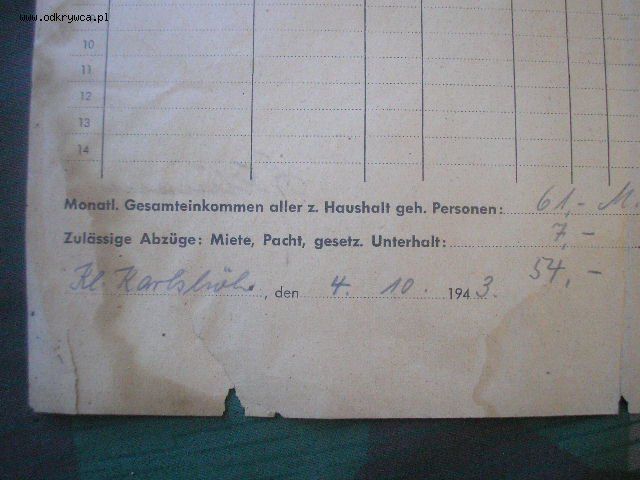 www.odkrywca.pl
10
11
12
13
14
Monatl. Gesamteinkommen aller z. Haushalt geh. Personen: 61,- M.
Zulässige Abzüge: Miete, Pacht, gesetz. Unterhalt: 7,-
54,-
Kl. Karlshöh, den 4. 10. 1943.